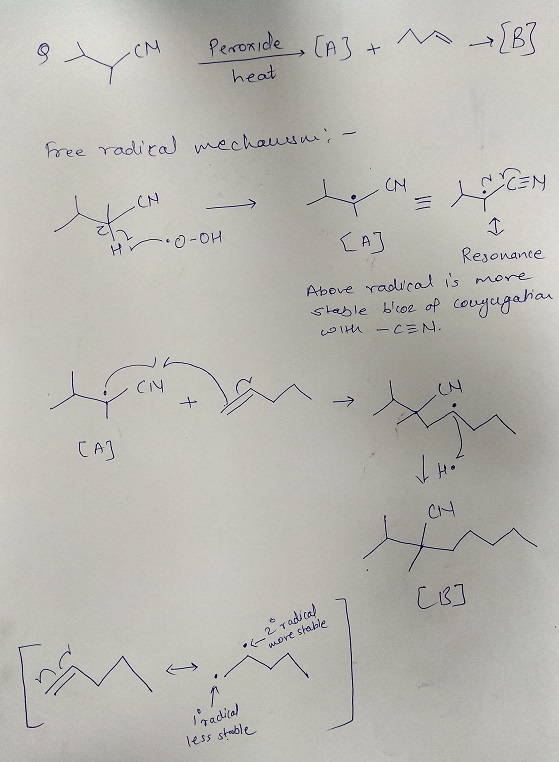 Q CN Peroxide [A] + → [B]
heat
Free radical mechanism: -
CN CN C≡N
H ·O-OH [A] Resonance
Above radical is more
stable b'coz of conjugation
with -C≡N.
CN + → CN
[A]
H·
CN
[B]
2° radical
more stable
1° radical
less stable